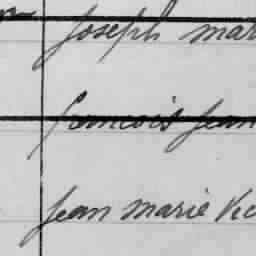 Joseph mar
francois Jean
Jean marie Vic